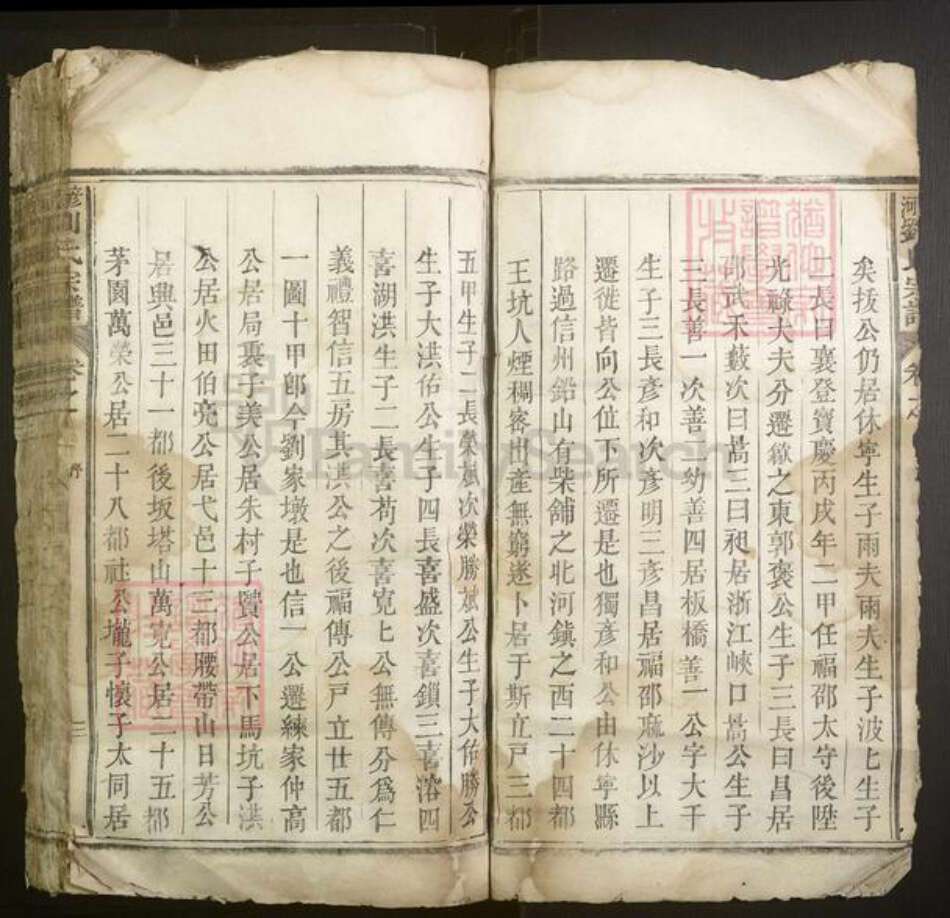 矣拔公仍居休寧生子雨夫雨夫生子波七生子
二長曰襄登寶慶丙戌年二甲任福邵太守後陞
光祿大夫分遷歙之東郭褒公生子三長曰昌居
邵武禾藪次曰暠三曰昶居浙江峽口暠公生子
三長善一次善二幼善四居板橋善一公字大千
生子三長彥和次彥明三彥昌居福邵蔴沙以上
遷徙皆向公位下所遷是也獨彥和公由休寧縣
路過信州鉛山有柴舖之北河鎮之西二十四都
王坑人煙稠密出產無窮遂卜居于斯立戶三都
五甲生子二長榮斌次榮勝斌公生子大佑勝公
生子大洪佑公生子四長喜盛次喜鎖三喜溶四
喜湖洪生子二長喜茍次喜寬七公無傳分爲仁
義禮智信五房其洪公之後福傳公戶立廿五都
一圖十甲郎今劉家墩是也信一公遷練家仲高
公居局裏子美公居朱村子贊公居下馬坑子洪
公居火田伯亮公居弋邑十三都腰帶山日芳公
居興邑三十一都後坂塔山萬寬公居二十五都
茅園萬榮公居二十八都社公壠子懷子太同居
劉氏宗譜
卷之一
序